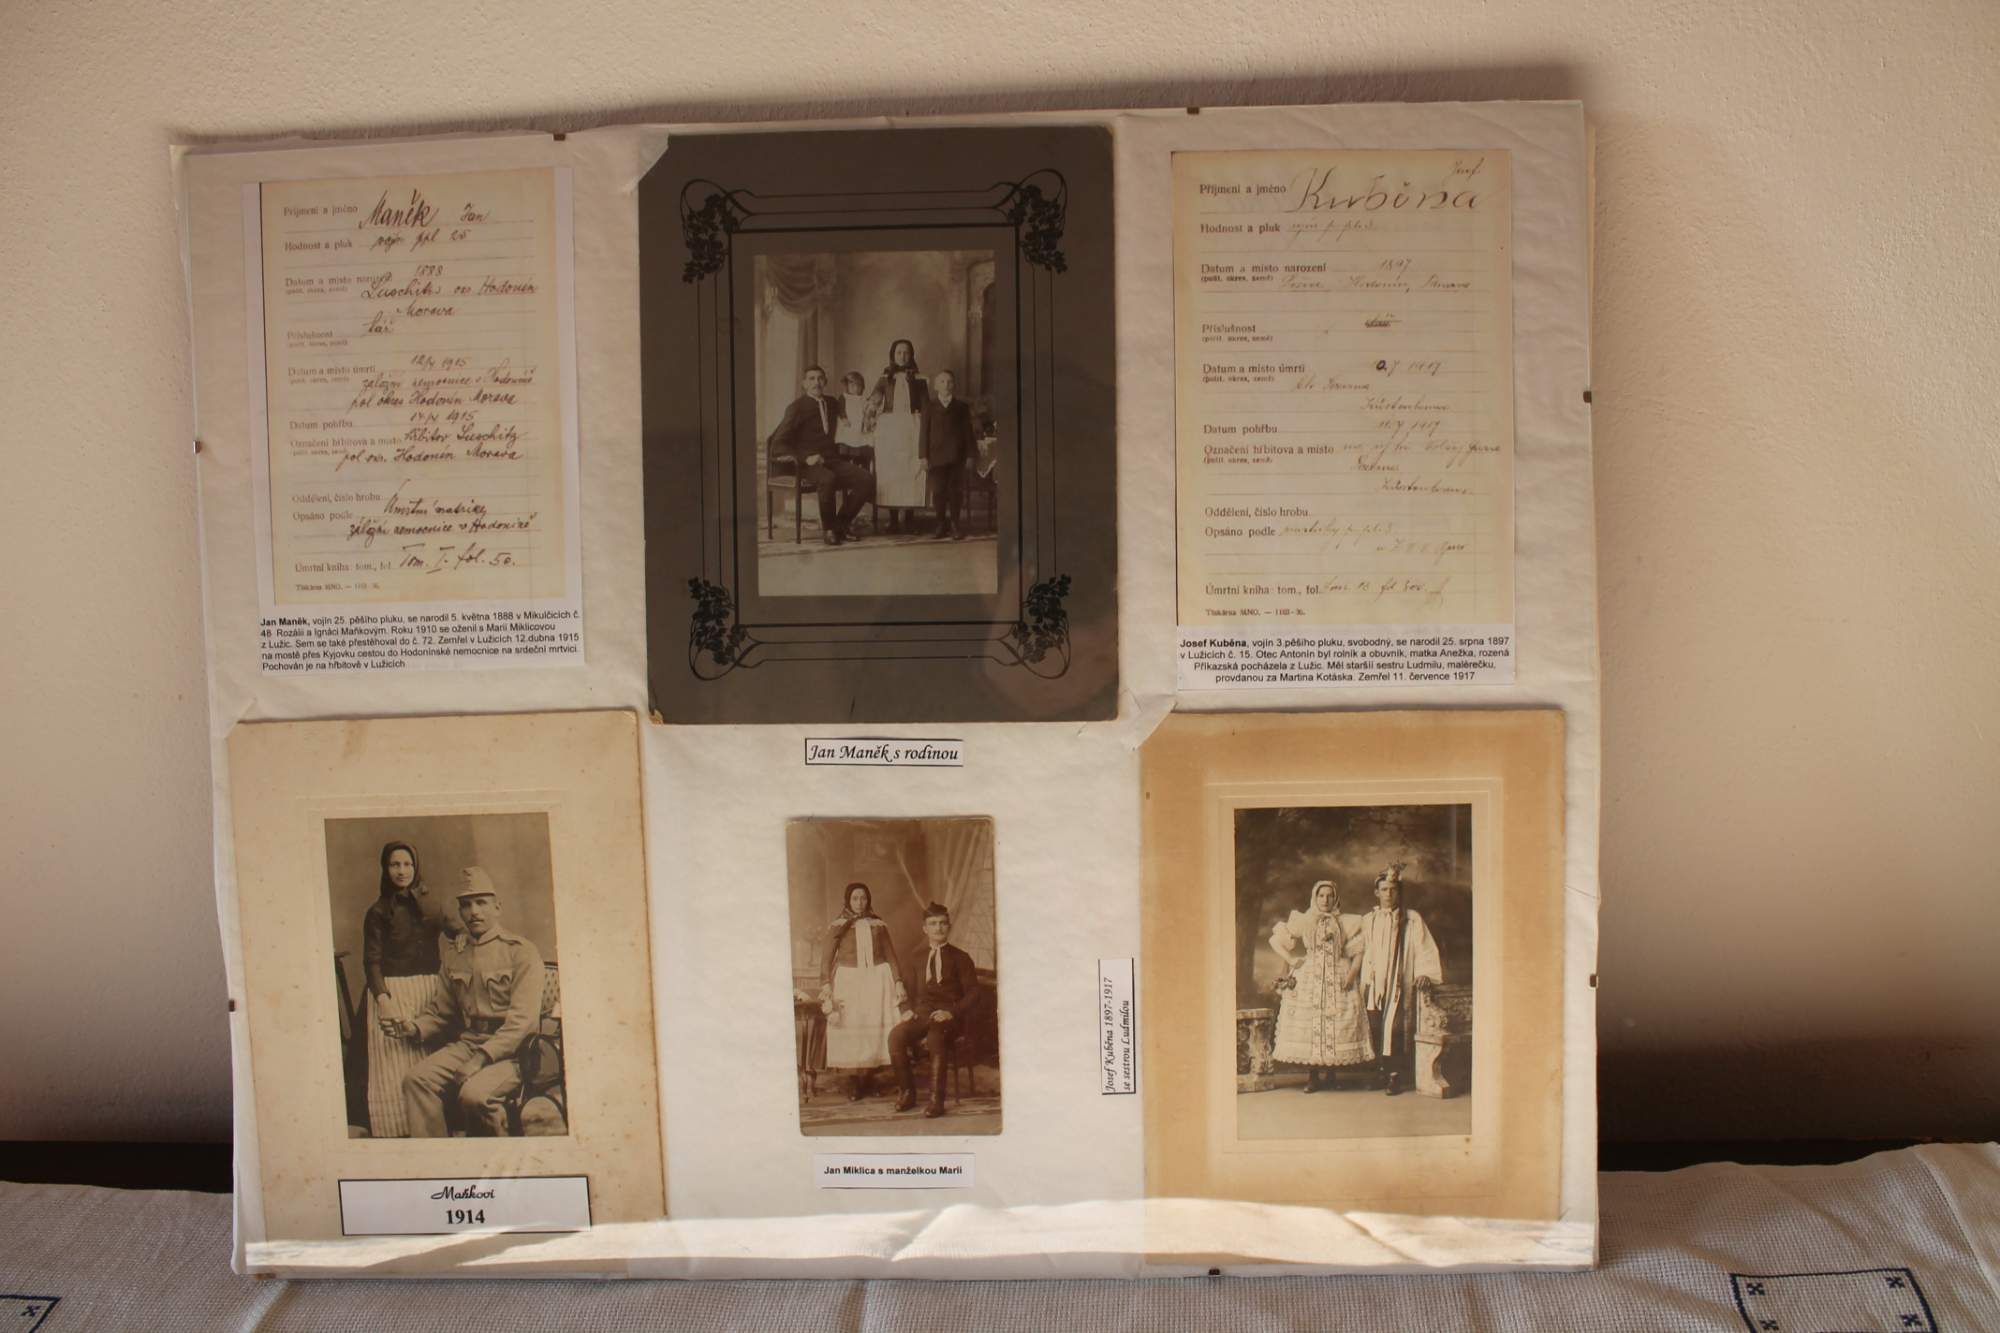 Příjmení a jméno Maněk Jan
Hodnost a pluk voj. ppl 25
Datum a místo narození 1888
(polit. okres, země) Luschitz okr. Hodonín
Morava
Příslušnost
(polit. okres, země)
Datum a místo úmrtí 12/4 1915
(polit. okres, země) záložní nemocnice v Hodoníně
pol. okres Hodonín Morava
Datum pohřbu 14/4 1915
Označení hřbitova a místo hřbitov Luschitz
(polit. okres, země) pol. okr. Hodonín Morava
Oddělení, číslo hrobu
Opsáno podle Úmrtní matriky
záložní nemocnice v Hodoníně
Úmrtní kniha: tom., fol. Tom. I. fol. 50.
Tiskárna MNO. — 1103-36.
Jan Maněk, vojín 25. pěšího pluku, se narodil 5. května 1888 v Mikulčicích č.
48 Rozálii a Ignáci Maňkovým. Roku 1910 se oženil s Marií Miklicovou
z Lužic. Sem se také přestěhoval do č. 72. Zemřel v Lužicích 12.dubna 1915
na mostě přes Kyjovku cestou do Hodonínské nemocnice na srdeční mrtvici.
Pochován je na hřbitově v Lužicích
Jan Maněk s rodinou
Josef
Příjmení a jméno Kuběna
Hodnost a pluk
Datum a místo narození 1897
(polit. okres, země) Hodonín, Morava
Příslušnost
(polit. okres, země)
Datum a místo úmrtí 7 1917
(polit. okres, země)
Küstenland
Datum pohřbu 11.7 1917
Označení hřbitova a místo
(polit. okres, země)
Oddělení, číslo hrobu
Opsáno podle matriky
Úmrtní kniha: tom., fol.
Tiskárna MNO. — 1103-36.
Josef Kuběna, vojín 3.pěšího pluku, svobodný, se narodil 25. srpna 1897
v Lužicích č. 15. Otec Antonín byl rolník a obuvník, matka Anežka, rozená
Příkazská pocházela z Lužic. Měl starší sestru Ludmilu, malérečku,
provdanou za Martina Kotáska. Zemřel 11. července 1917
Maňkovi
1914
Jan Miklica s manželkou Marií
Josef Kuběna 1897-1917
se sestrou Ludmilou